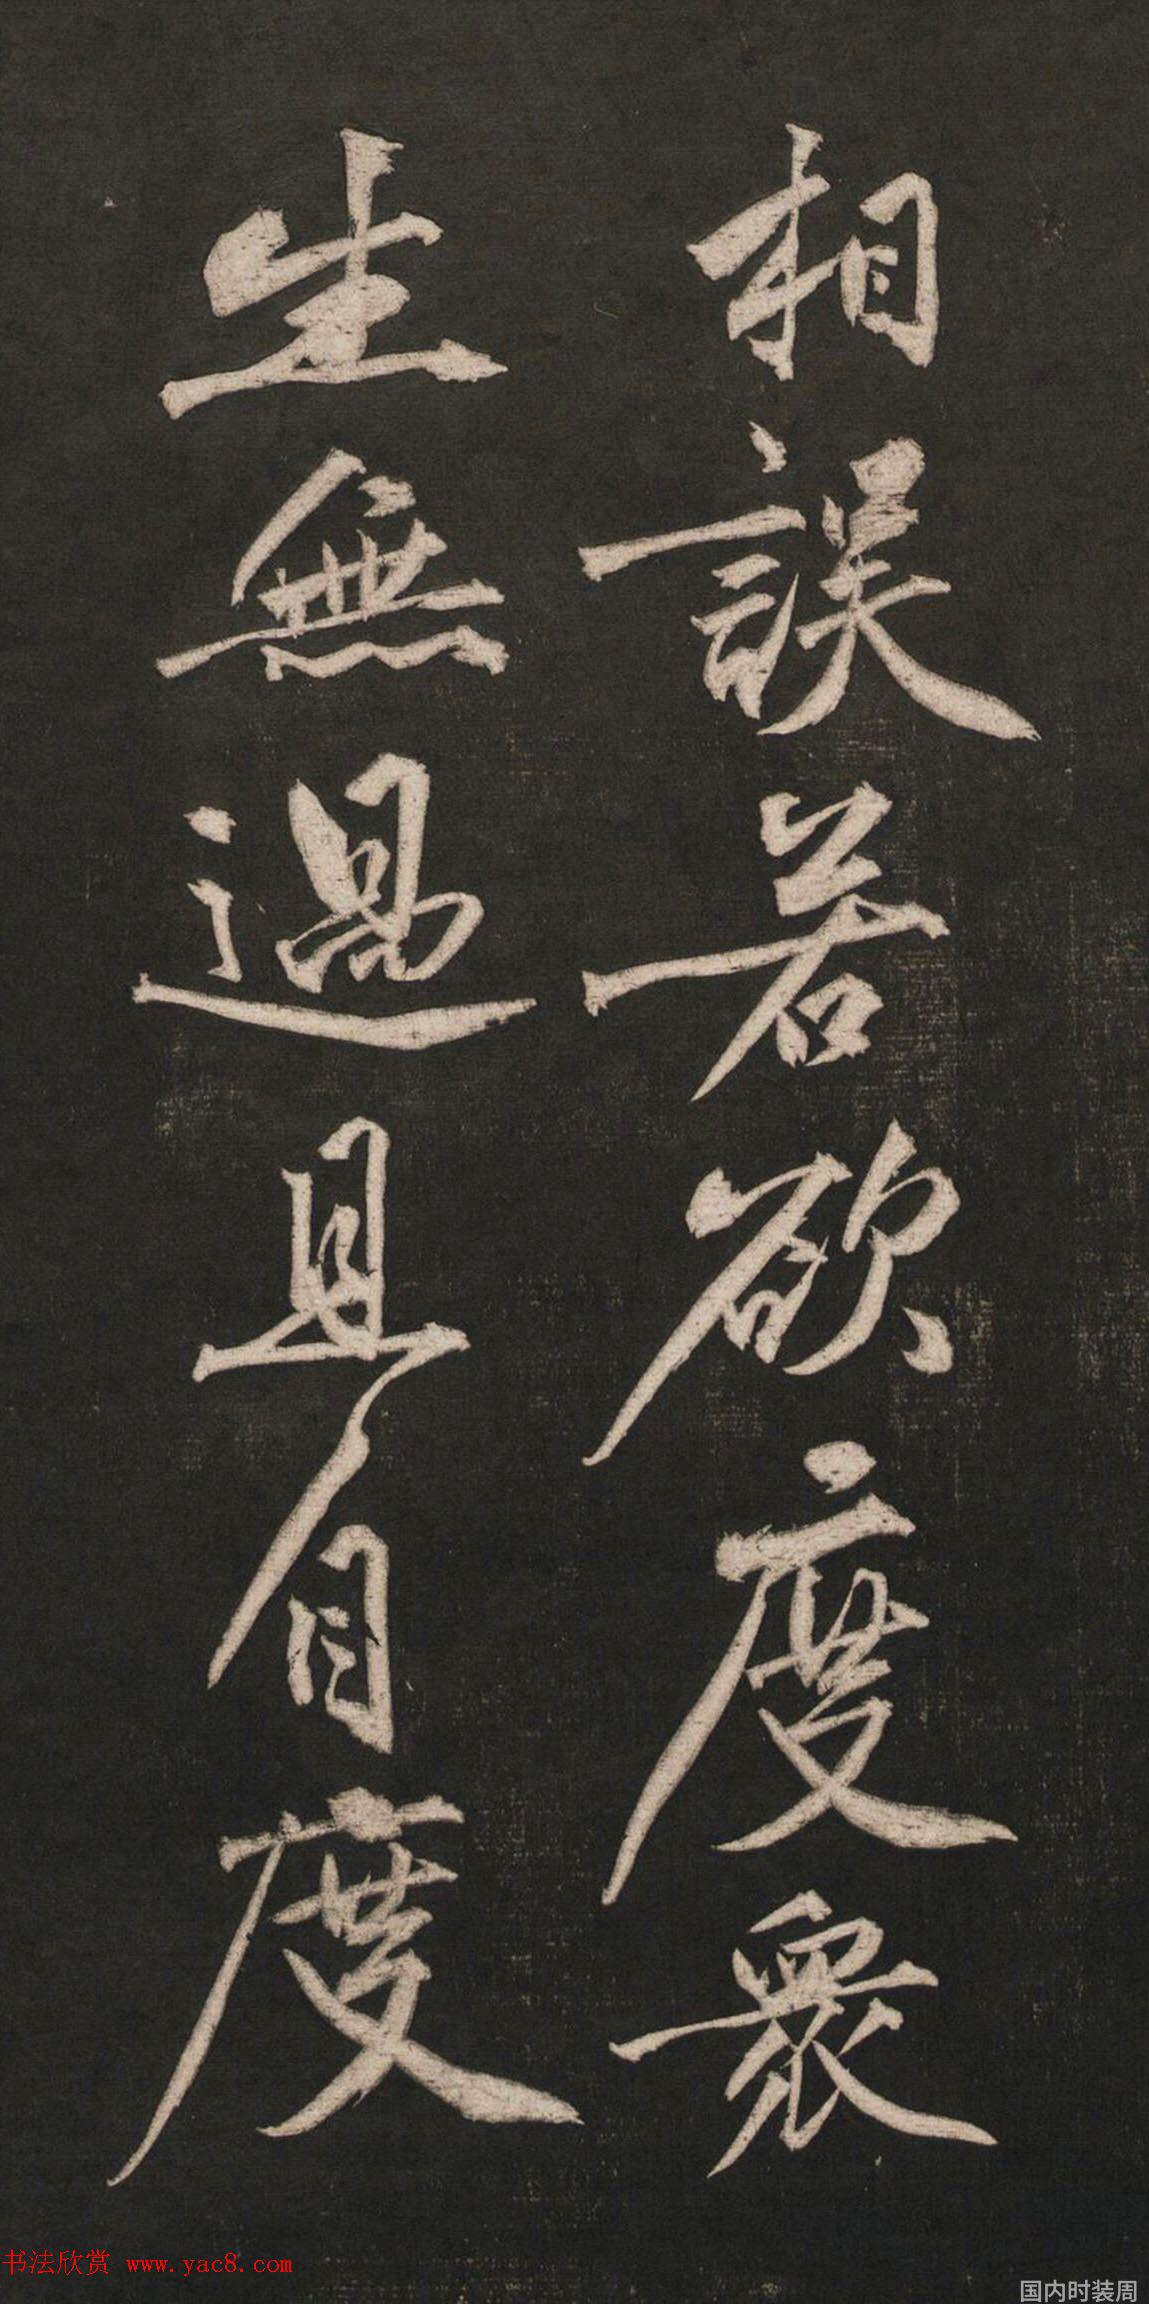 相誤若欲度衆
生無過且自度
书法欣赏 www.yac8.com
国内时装周